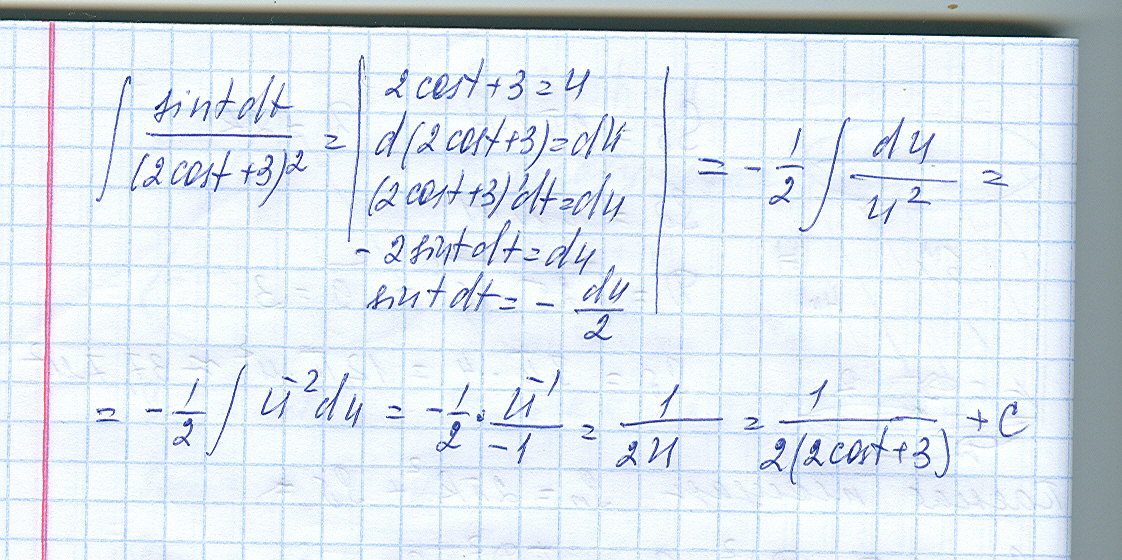 ∫ sint dt / (2cost+3)² = | 2cost+3=u
d(2cost+3)=du
(2cost+3)'dt=du
-2sint dt=du
sint dt = - du/2 | = - 1/2 ∫ du/u² =
= - 1/2 ∫ u⁻² du = - 1/2 · u⁻¹/-1 = 1/2u = 1/2(2cost+3) + C